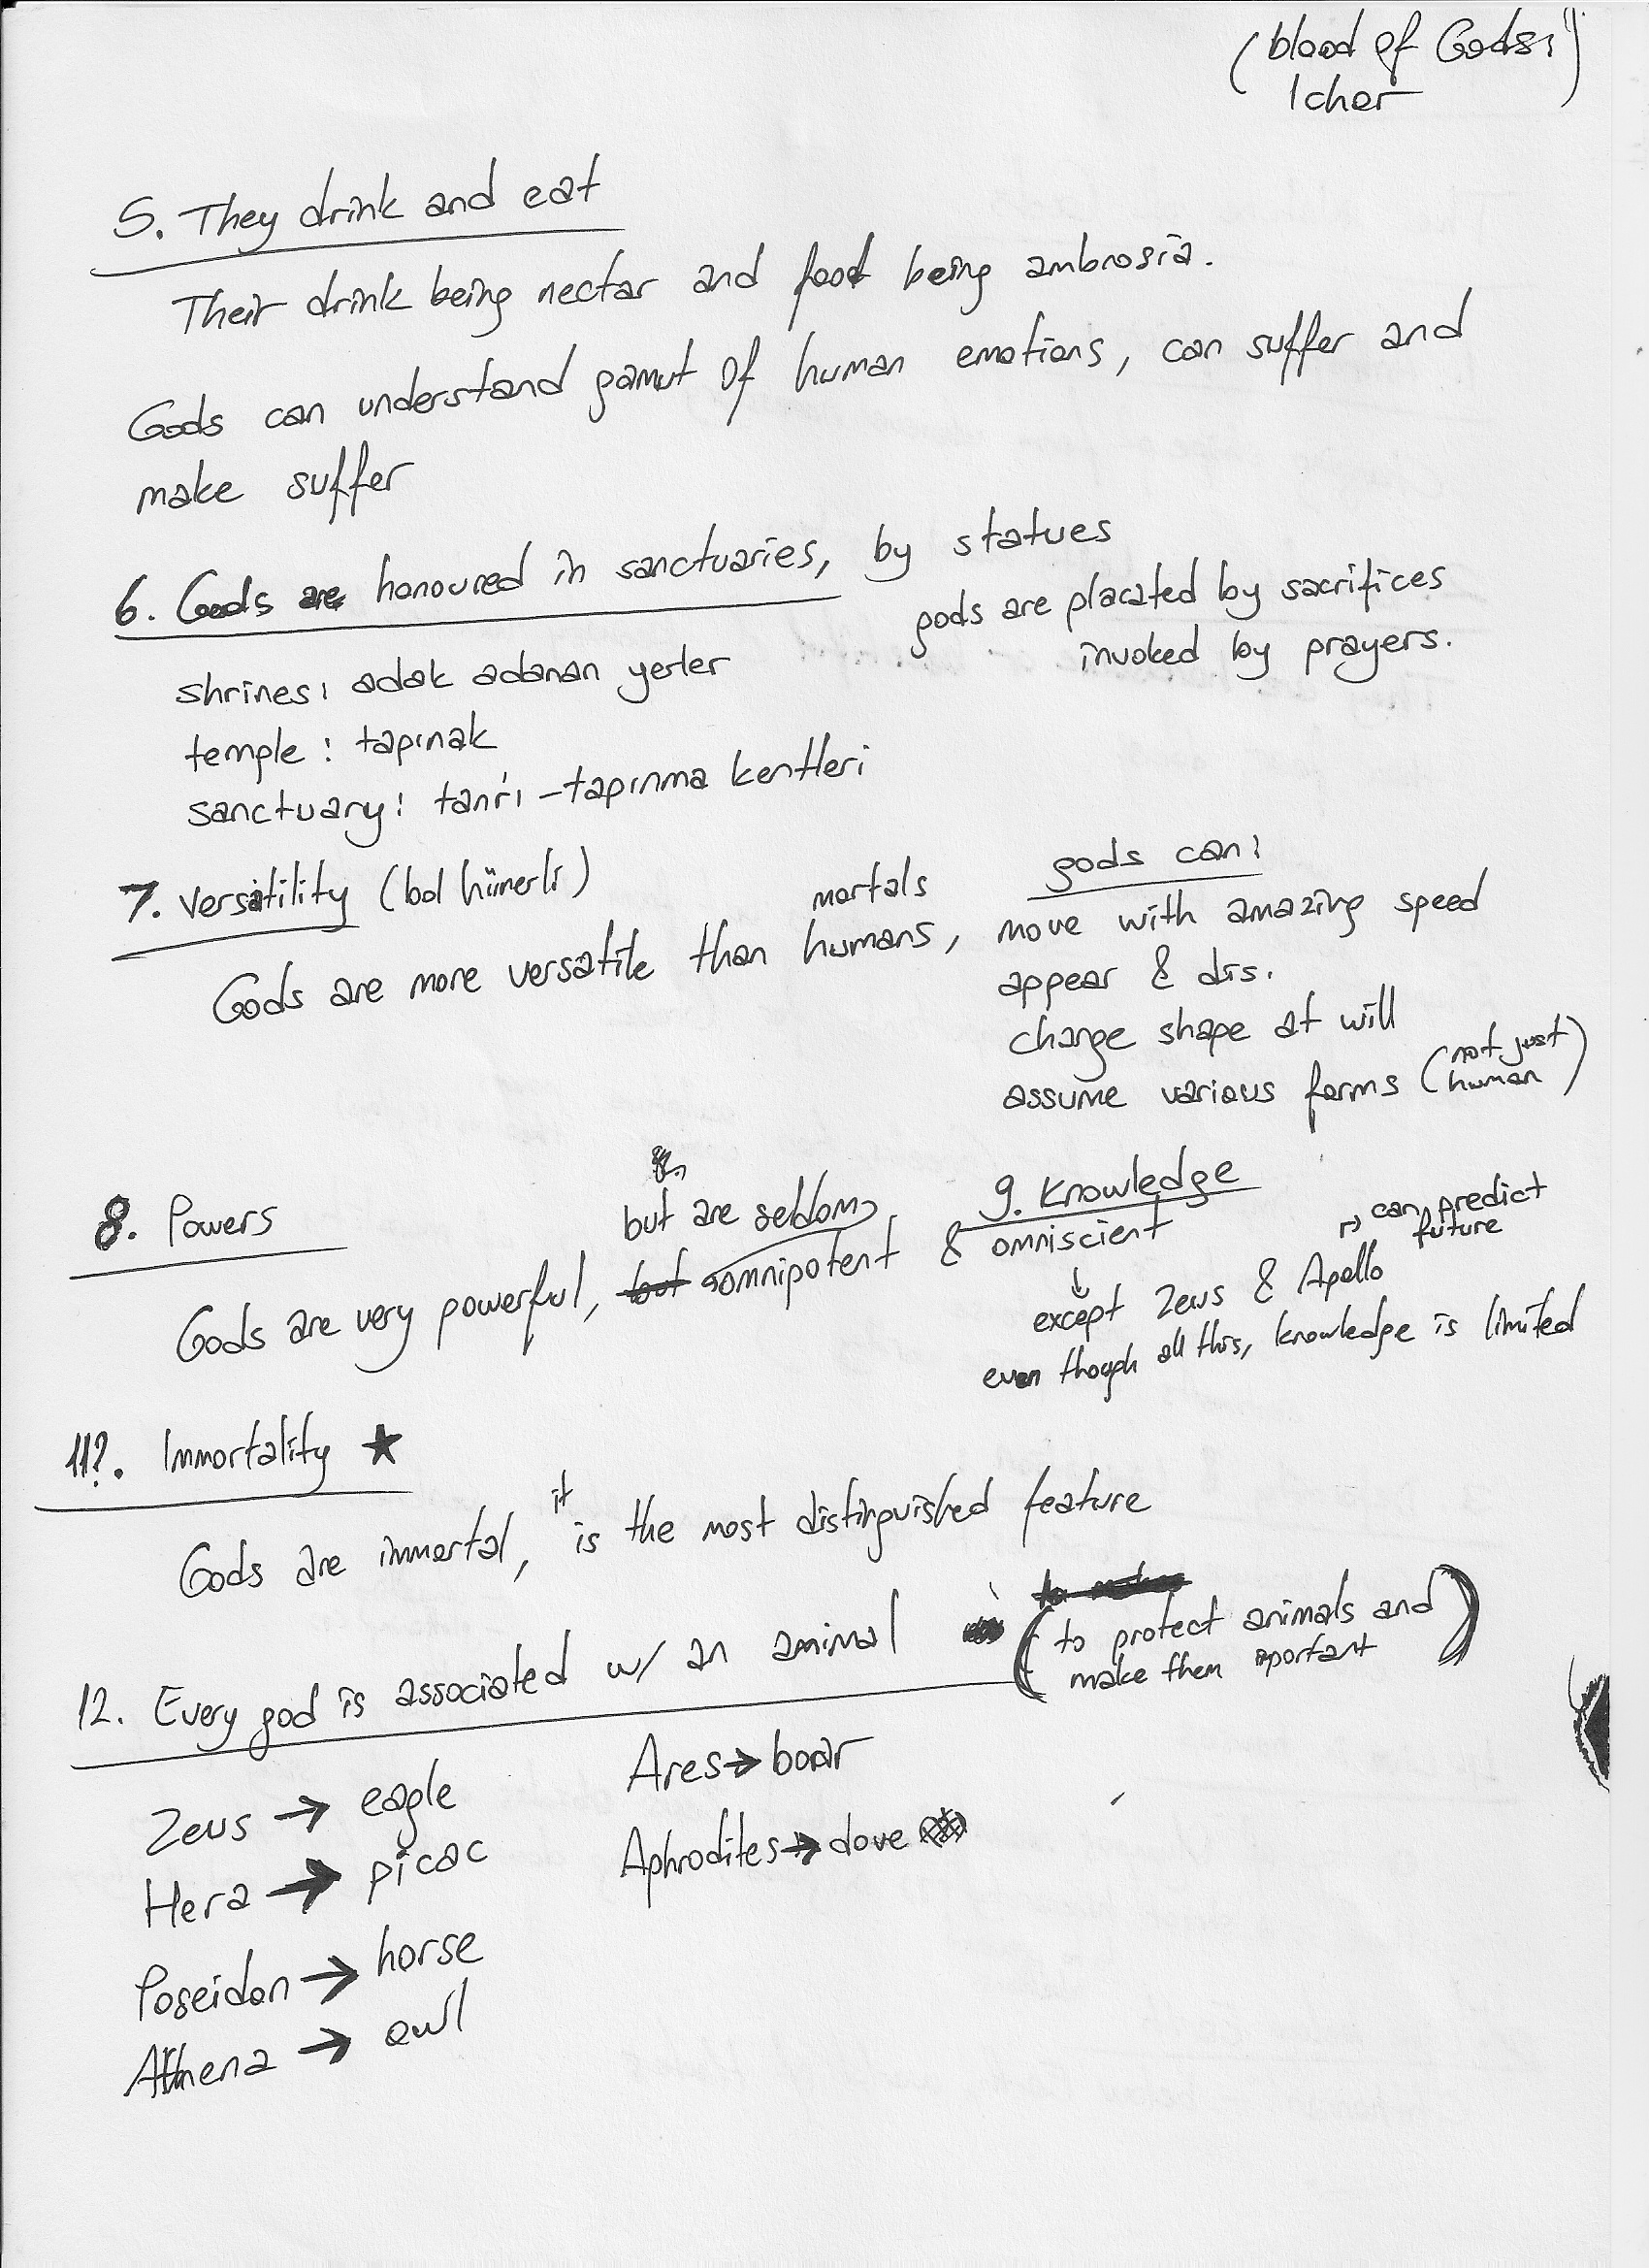 (blood of Gods:)
Icher
5. They drink and eat
Their drink being nectar and food being ambrosia.
Gods can understand gamut of human emotions, can suffer and
make suffer
6. Gods are honoured in sanctuaries, by statues
gods are placated by sacrifices
invoked by prayers.
shrines: adak adanan yerler
temple: tapınak
sanctuary: tanrı-tapınma kentleri
7. Versatility (bol hünerli)
Gods are more versatile than humans,
mortals
gods can:
move with amazing speed
appear & dis.
change shape at will
assume various forms (not just
human)
8. Powers
but are seldom
Gods are very powerful, but omnipotent &
9. Knowledge
omniscient
↓
except Zeus & Apollo
↱ can predict
future
even though all this, knowledge is limited
11?. Immortality ★
Gods are immortal, it is the most distinguished feature
12. Every god is associated w/ an aminal
(to protect animals and
make them mportant)
Zeus → eagle
Hera → picac
Poseidon → horse
Athena → owl
Ares → boar
Aphrodites → dove